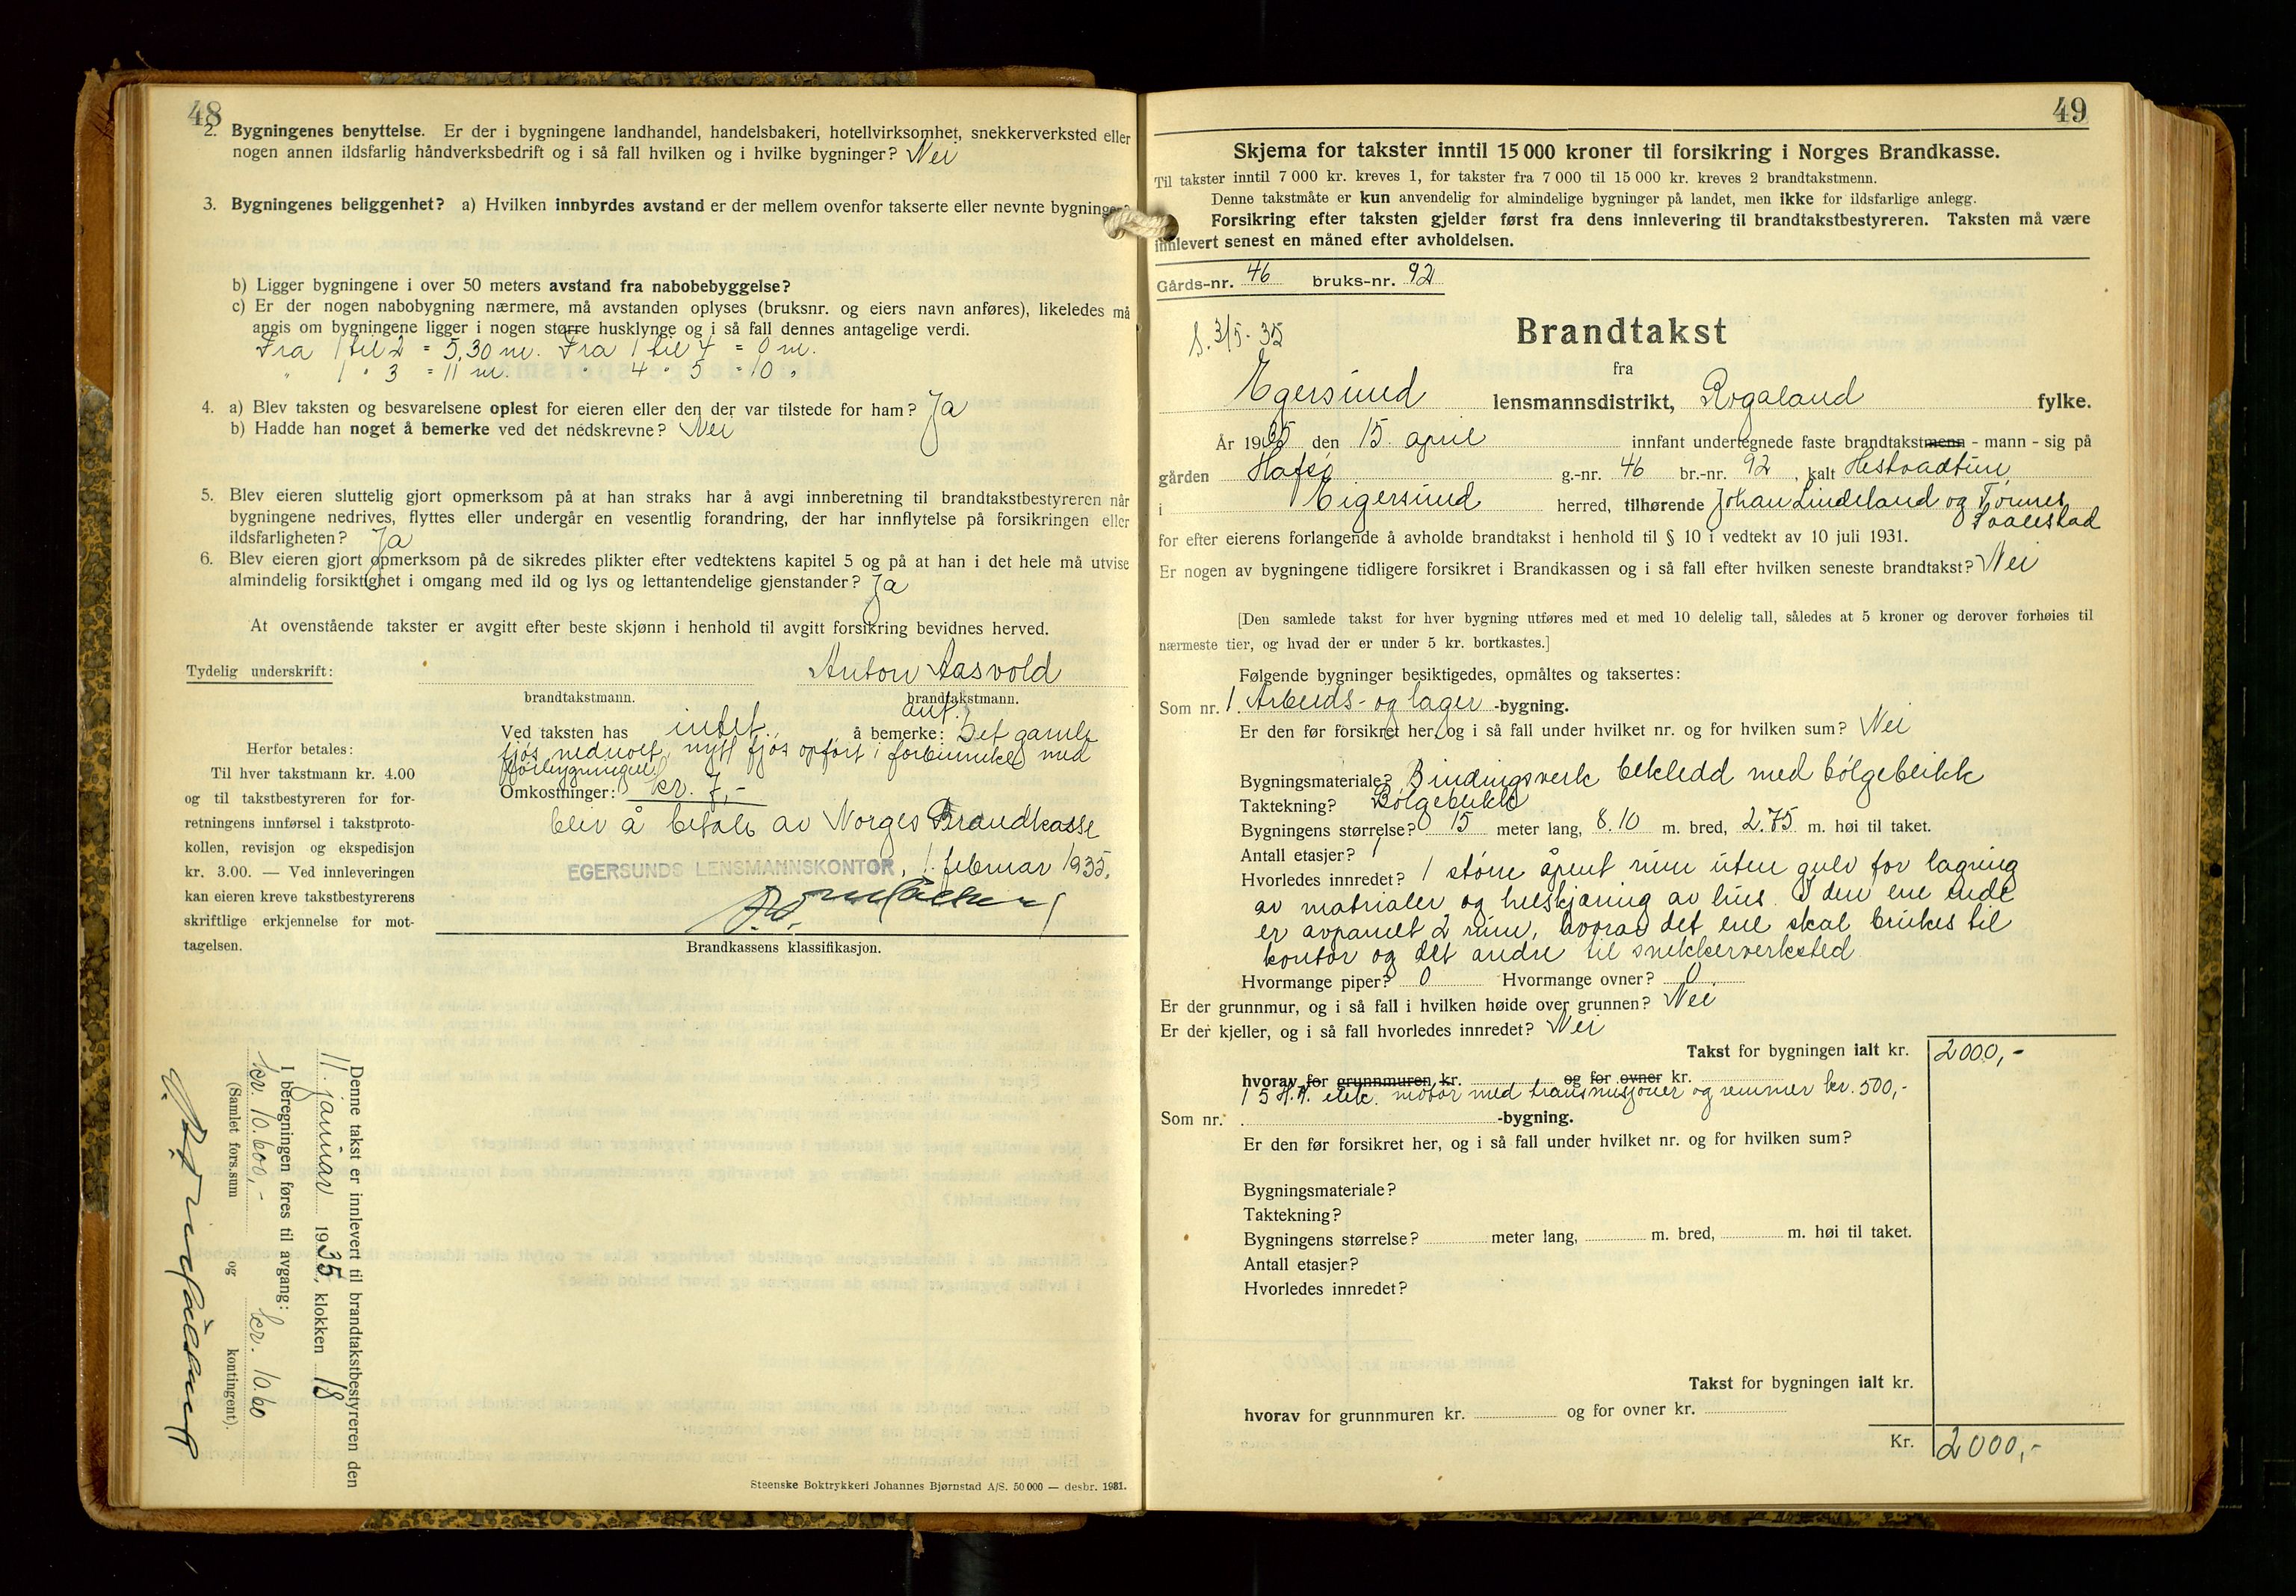 48
2. Bygningenes benyttelse. Er der i bygningene landhandel, handelsbakeri, hotellvirksomhet, snekkerverksted eller
nogen annen ildsfarlig håndverksbedrift og i så fall hvilken og i hvilke bygninger? Nei
3. Bygningenes beliggenhet? a) Hvilken innbyrdes avstand er der mellem ovenfor takserte eller nevnte bygninger?
b) Ligger bygningene i over 50 meters avstand fra nabobebyggelse?
c) Er der nogen nabobygning nærmere, må avstanden oplyses (bruksnr. og eiers navn anføres), likeledes må
angis om bygningene ligger i nogen større husklynge og i så fall dennes antagelige verdi.
Fra 1 til 2 = 5,30 m. Fra 1 til 4 = 0 m.
" 1 " 3 = 11 m. " 4 " 5 = 10 "
4. a) Blev taksten og besvarelsene oplest for eieren eller den der var tilstede for ham? Ja
b) Hadde han noget å bemerke ved det nedskrevne? Nei
5. Blev eieren sluttelig gjort opmerksom på at han straks har å avgi innberetning til brandtakstbestyreren når
bygningene nedrives, flyttes eller undergår en vesentlig forandring, der har innflytelse på forsikringen eller
ildsfarligheten? Ja
6. Blev eieren gjort opmerksom på de sikredes plikter efter vedtektens kapitel 5 og på at han i det hele må utvise
almindelig forsiktighet i omgang med ild og lys og lettantendelige gjenstander? Ja
At ovenstående takster er avgitt efter beste skjønn i henhold til avgitt forsikring bevidnes herved.
Tydelig underskrift: Anton Aasvold
brandtakstmann. brandtakstmann.
Ved taksten has intet å bemerke: Det gamle
fjøs nedrevet, nytt fjøs opført i forbinnelse med
Omkostninger: kr. 7,-
blev å betale av Norges Brandkasse
EGERSUNDS LENSMANNSKONTOR, 1. februar 1935.
Brandkassens klassifikasjon.
Herfor betales:
Til hver takstmann kr. 4.00
og til takstbestyreren for for-
retningens innførsel i takstproto-
kollen, revisjon og ekspedisjon
kr. 3.00. — Ved innleveringen
kan eieren kreve takstbestyrerens
skriftlige erkjennelse for mot-
tagelsen.
Denne takst er innlevert til brandtakstbestyreren den
11. januar 1935, klokken 18
I beregningen føres til avgang:
kr. 10.600,- kr. 10.60
(Samlet fors.sum og kontingent).
Steenske Boktrykkeri Johannes Bjørnstad A/S. 50 000 — desbr. 1931.
49
Skjema for takster inntil 15 000 kroner til forsikring i Norges Brandkasse.
Til takster inntil 7 000 kr. kreves 1, for takster fra 7 000 til 15 000 kr. kreves 2 brandtakstmenn.
Denne takstmåte er kun anvendelig for almindelige bygninger på landet, men ikke for ildsfarlige anlegg.
Forsikring efter taksten gjelder først fra dens innlevering til brandtakstbestyreren. Taksten må være
innlevert senest en måned efter avholdelsen.
Gårds-nr. 46 bruks-nr. 92
3/5-35
Brandtakst
fra
Egersund lensmannsdistrikt, Rogaland fylke.
År 1935 den 15. april innfant undertegnede faste brandtakstmenn - mann - sig på
gården Hafsø g.-nr. 46 br.-nr. 92, kalt Hestvadtun
i Eigersund herred, tilhørende Johan Lindeland og Tønnes
for efter eierens forlangende å avholde brandtakst i henhold til § 10 i vedtekt av 10 juli 1931.
Er nogen av bygningene tidligere forsikret i Brandkassen og i så fall efter hvilken seneste brandtakst? Nei
[Den samlede takst for hver bygning utføres med et med 10 delelig tall, således at 5 kroner og derover forhøies til
nærmeste tier, og hvad der er under 5 kr. bortkastes.]
Følgende bygninger besiktigedes, opmåltes og taksertes:
Som nr. 1. Arbeids- og lager -bygning.
Er den før forsikret her, og i så fall under hvilket nr. og for hvilken sum? Nei
Bygningsmateriale? Bindingsverk bekledd med bølgeblikk
Taktekning? Bølgeblikk
Bygningens størrelse? 15 meter lang, 8.10 m. bred, 2.75 m. høi til taket.
Antall etasjer? 1
Hvorledes innredet? 1 større åpent rum uten gulv for lagring
av matrialer og helskjæring av hus. I den ene ende
er avpanelt 2 rum, hvorav det ene skal brukes til
kontor og det andre til snekkerverksted
Hvormange piper? 0 Hvormange ovner? 0
Er der grunnmur, og i så fall i hvilken høide over grunnen? Nei
Er der kjeller, og i så fall hvorledes innredet? Nei
Takst for bygningen ialt kr. 2000,-
hvorav for grunnmuren kr. og for ovner kr.
1 5 H.K. elek. motor med transmisjoner og remmer kr. 500,-
Som nr. -bygning.
Er den før forsikret her, og i så fall under hvilket nr. og for hvilken sum?
Bygningsmateriale?
Taktekning?
Bygningens størrelse? meter lang, m. bred, m. høi til taket.
Antall etasjer?
Hvorledes innredet?
Takst for bygningen ialt kr.
hvorav for grunnmuren kr. og for ovner kr.
Kr. 2000,-